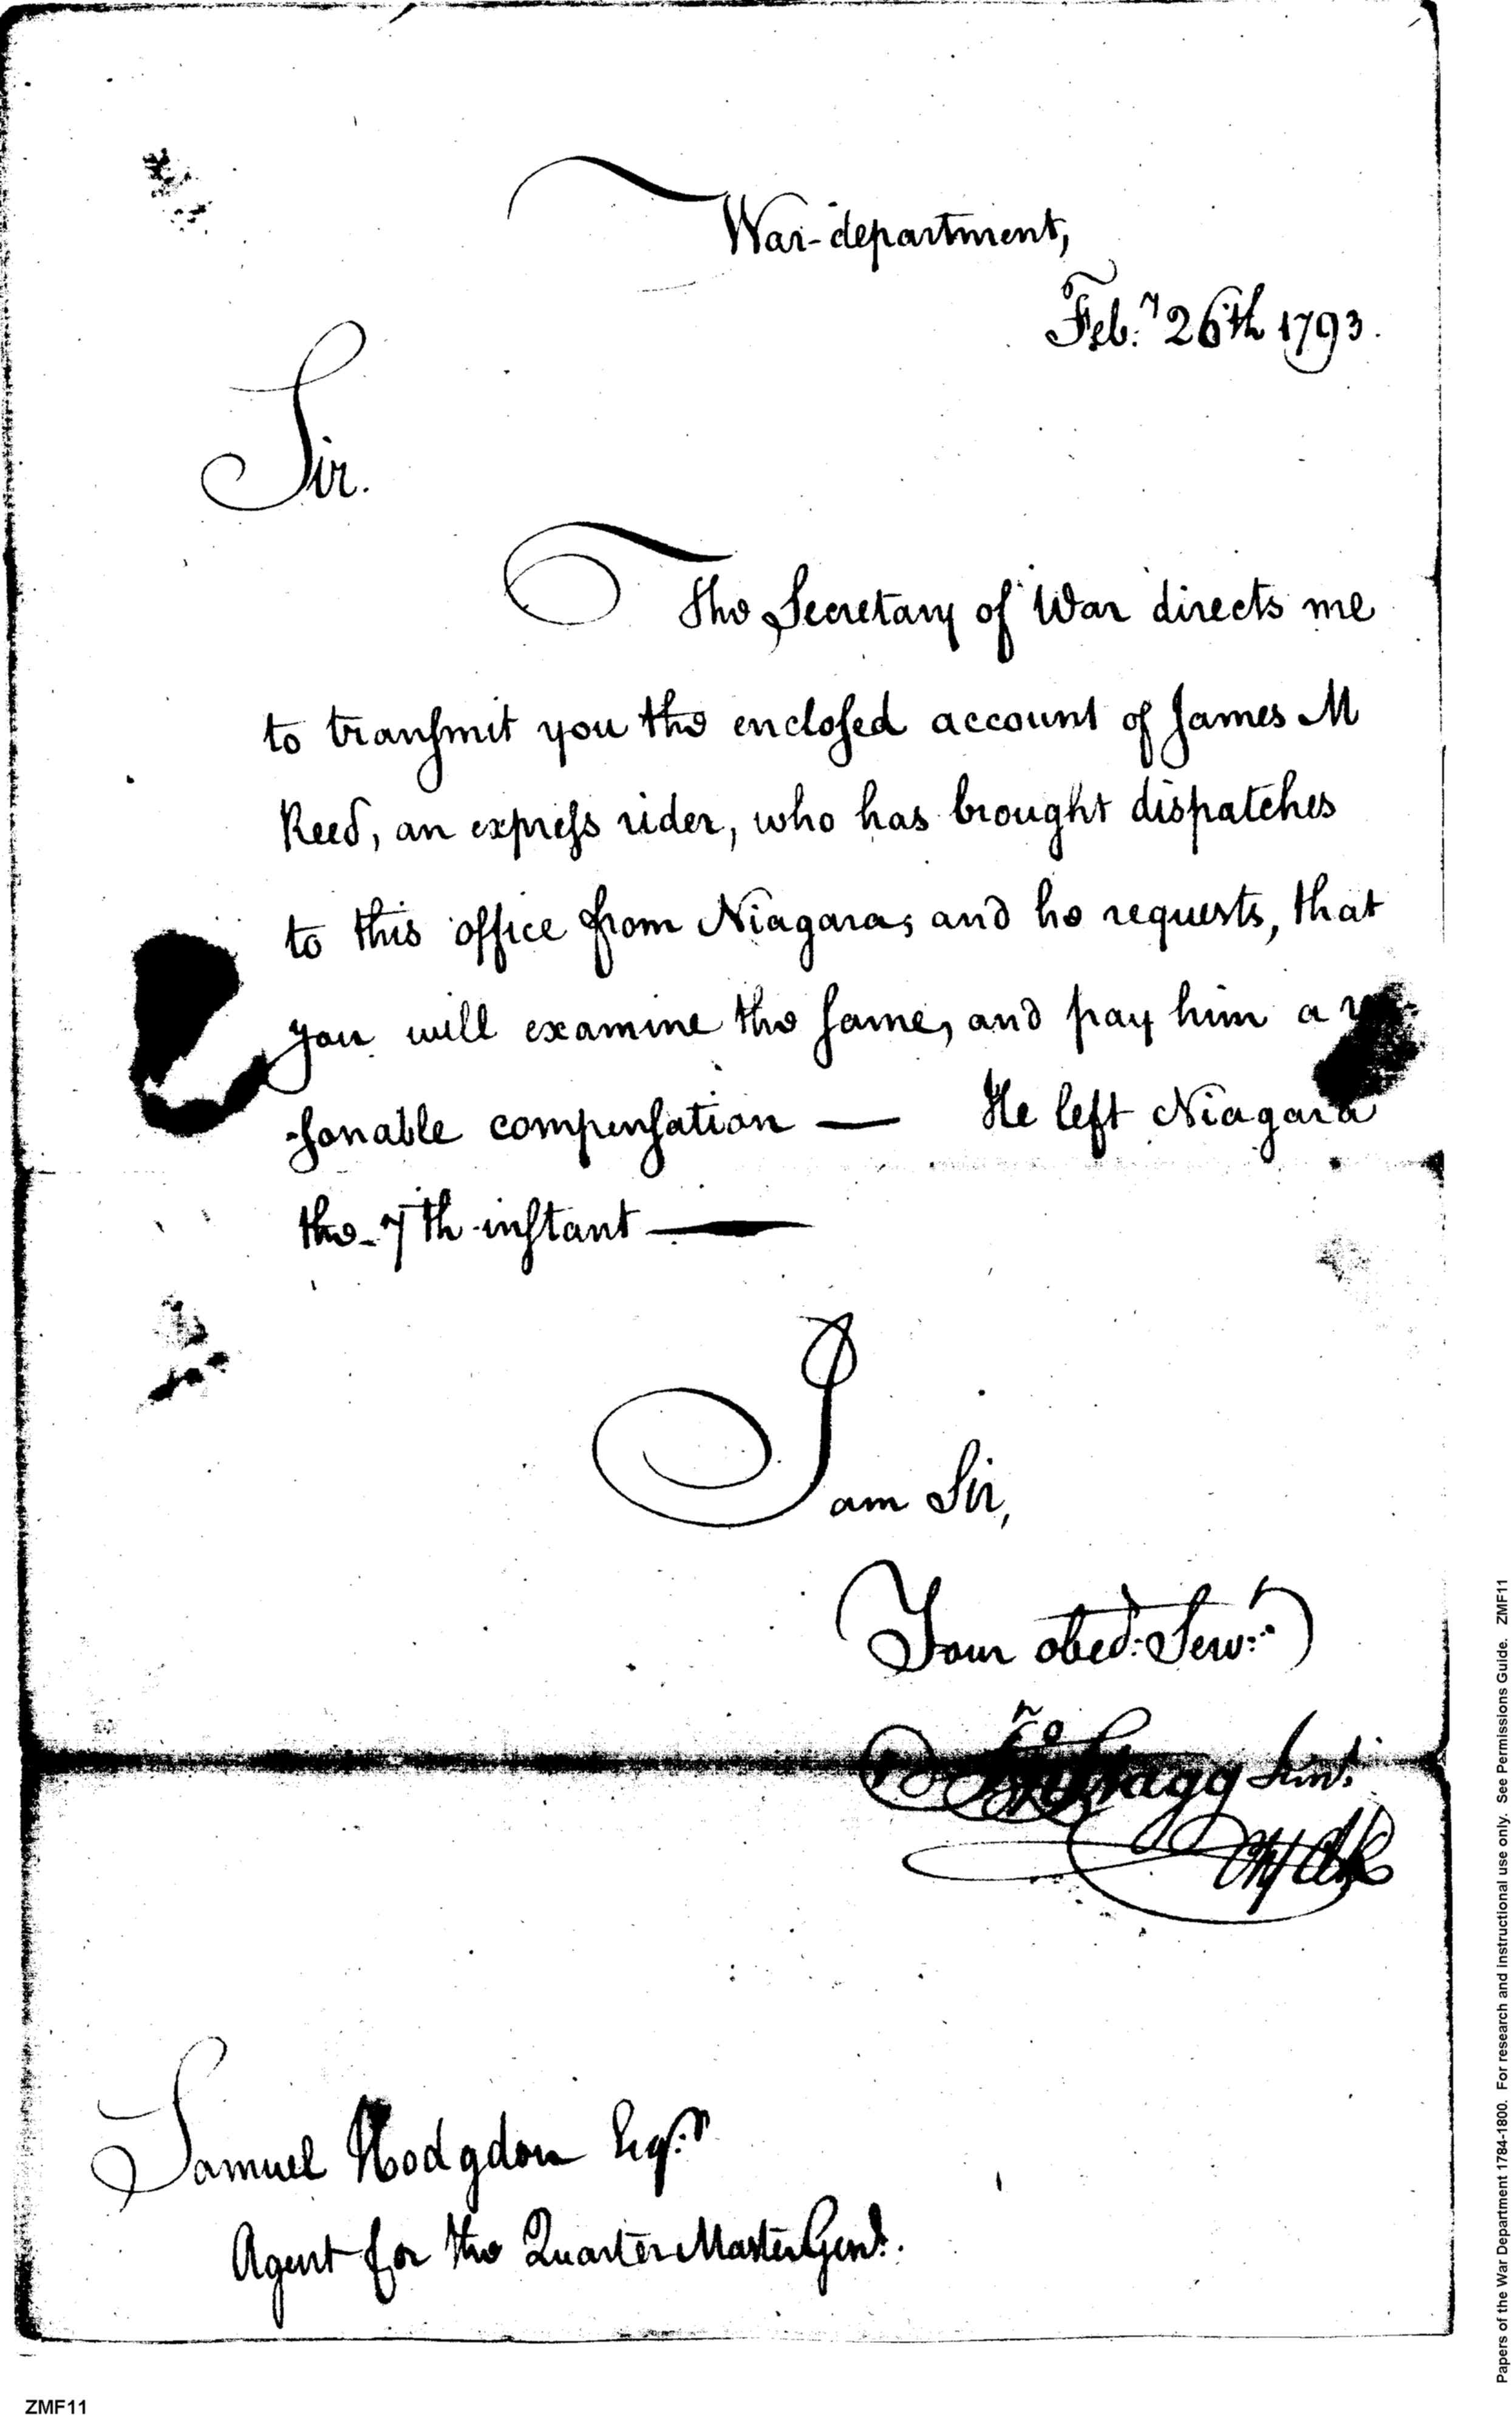 War-department,
Feb:y 26th 1793.
Sir.
The Secretary of War directs me
to transmit you the enclosed account of James M
Reed, an express rider, who has brought dispatches
to this office from Niagara, and he requests, that
you will examine the same, and pay him a
-sonable compensation — He left Niagara
the 7th instant —
I am Sir,
Your obed: Serv:t
Stagg Jun:r
Samuel Hodgdon Esq:r
Agent for the Quarter Master Genl.
Papers of the War Department 1784-1800. For research and instructional use only. See Permissions Guide. ZMF11
ZMF11